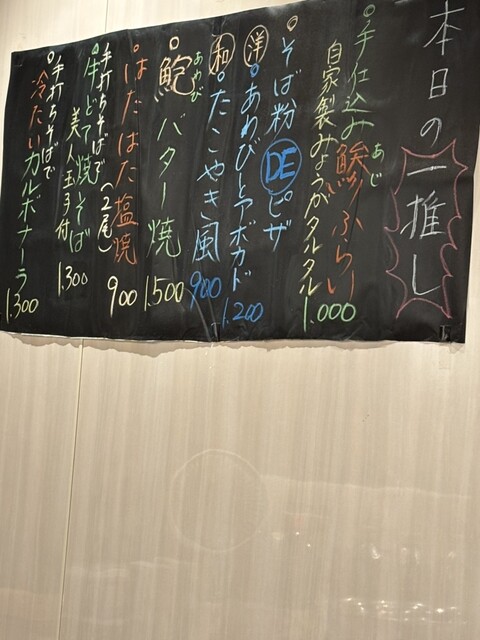 本日の一推し
手仕込み鯵ふらい
あじ
自家製みょうがタルタル
1.000
そば粉DEピザ
洋 あわびとアボカド
1.200
和 たこやき風
900
鮑バター焼
あわび
1.500
はたはた塩焼
(2尾)
900
手打ちそばで
牛すじ焼そば
美人玉子付
1.300
手打ちそばで
冷たいカルボナーラ
1.300